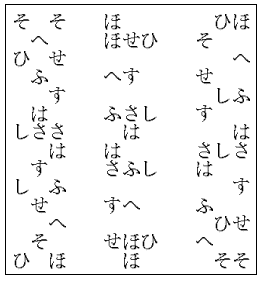 そ　そ　　ほ　　　　　ひほ
　へ　　　ほせひ　　そ
ひ　せ　　　　　　　　　へ
　ふ　　　へす　　　せ
　　す　　　　　　　　しふ
　は　　　ふさし　　す
しささ　　　は　　　　　は
　　は　　は　　　　さしさ
　す　　　さふし　　は
し　ふ　　　　　　　　　す
　せ　　　すへ　　　ふ
　　へ　　　　　　　　ひせ
　そ　　　せほひ　　へ
ひ　ほ　　　ほ　　　　そそ